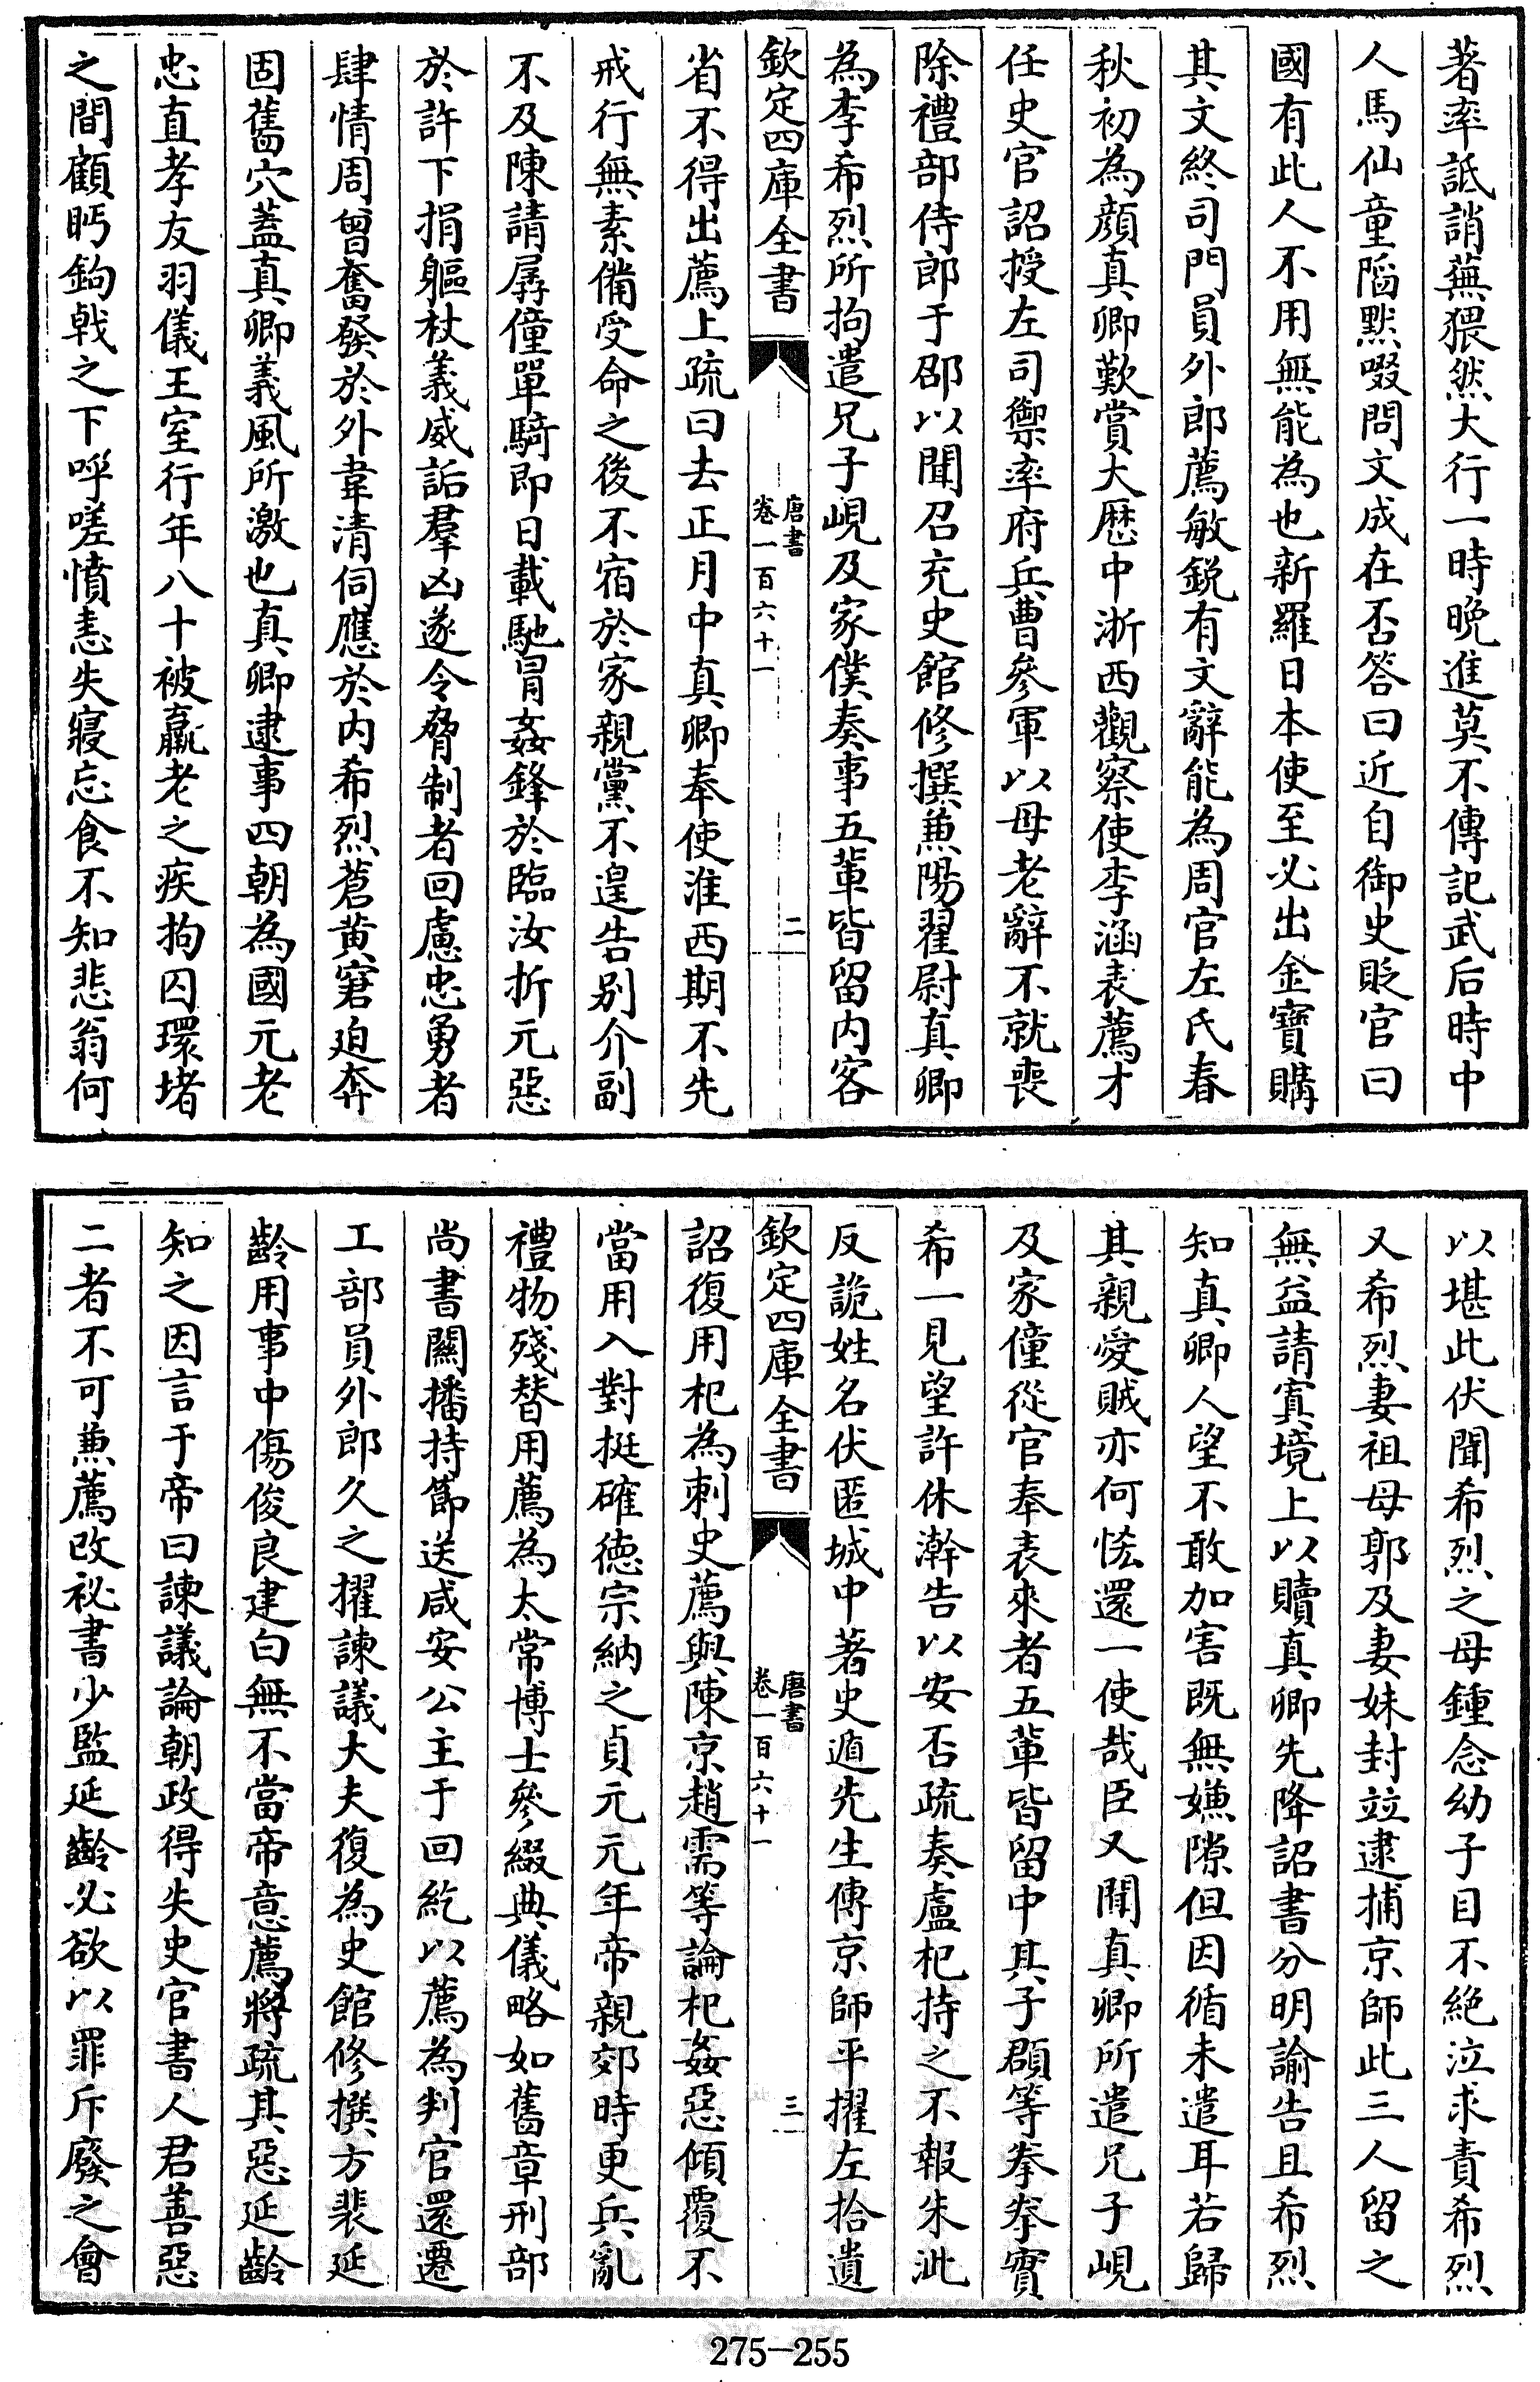 著率詆誚蕪猥然大行一時晚進莫不傳記武后時中
人馬仙童陷黙啜問文成在否答曰近自御史貶官曰
國有此人不用無能為也新羅日本使至必出金寶購
其文終司門員外郎薦敏鋭有文辭能為周官左氏春
秋初為顔真卿歎賞大歴中浙西觀察使李涵表薦才
任史官詔授左司禦率府兵曹參軍以母老辭不就喪
除禮部侍郎于邵以聞召充史館修撰兼陽翟尉真卿
為李希烈所拘遣兄子峴及家僕奏事五輩皆留内客
欽定四庫全書
唐書
卷一百六十一
二
省不得出薦上疏曰去正月中真卿奉使淮西期不先
戒行無素備受命之後不宿於家親黨不遑告别介副
不及陳請孱僮單騎即日載馳冒姦鋒於臨汝折元惡
於許下捐軀杖義威詬羣凶遂令脅制者回慮忠勇者
肆情周曾奮發於外韋清伺應於内希烈蒼黄窘迫奔
固舊穴蓋真卿義風所激也真卿逮事四朝為國元老
忠直孝友羽儀王室行年八十被羸老之疾拘囚環堵
之間顧眄鉤戟之下呼嗟憤恚失寢忘食不知悲翁何
以堪此伏聞希烈之母鍾念幼子目不絶泣求責希烈
又希烈妻祖母郭及妻妹封竝逮捕京師此三人留之
無益請寘境上以贖真卿先降詔書分明諭告且希烈
知真卿人望不敢加害既無嫌隙但因循未遣耳若歸
其親愛賊亦何恡還一使哉臣又聞真卿所遣兄子峴
及家僮從官奉表來者五輩皆留中其子頵等拳拳實
希一見望許休澣告以安否疏奏盧杞持之不報朱泚
反詭姓名伏匿城中著史遁先生傳京師平擢左拾遺
欽定四庫全書
唐書
卷一百六十一
三
詔復用杞為刺史薦與陳京趙需等論杞姦惡傾覆不
當用入對挺確徳宗納之貞元元年帝親郊時更兵亂
禮物殘替用薦為太常博士參綴典儀略如舊章刑部
尚書關播持節送咸安公主于回紇以薦為判官還遷
工部員外郎久之擢諫議大夫復為史館修撰方裴延
齡用事中傷俊良建白無不當帝意薦將疏其惡延齡
知之因言于帝曰諫議論朝政得失史官書人君善惡
二者不可兼薦改祕書少監延齡必欲以罪斥廢之會
275-255